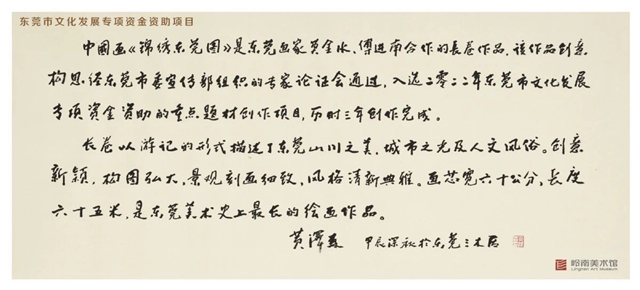 东莞市文化发展专项资金资助项目
中國画《锦绣东莞图》是东莞画家黄金水、傅进南合作的长卷作品,该作品创意
构思经东莞市委宣传部组织的专家论证会通过,入选二〇二二年东莞市文化发展
专项资金资助的重点题材创作项目,历时三年创作完成。
长卷以游记的形式描述了东莞山川之美,城市之光及人文风俗。创意
新颖,构图弘大,景观刻画细致,风格清新典雅。画芯宽六十公分,长度
六十五米,是东莞美术史上最长的绘画作品。
黄泽森 甲辰深秋於东莞三木居
岭南美术馆
Lingnan Art Museum